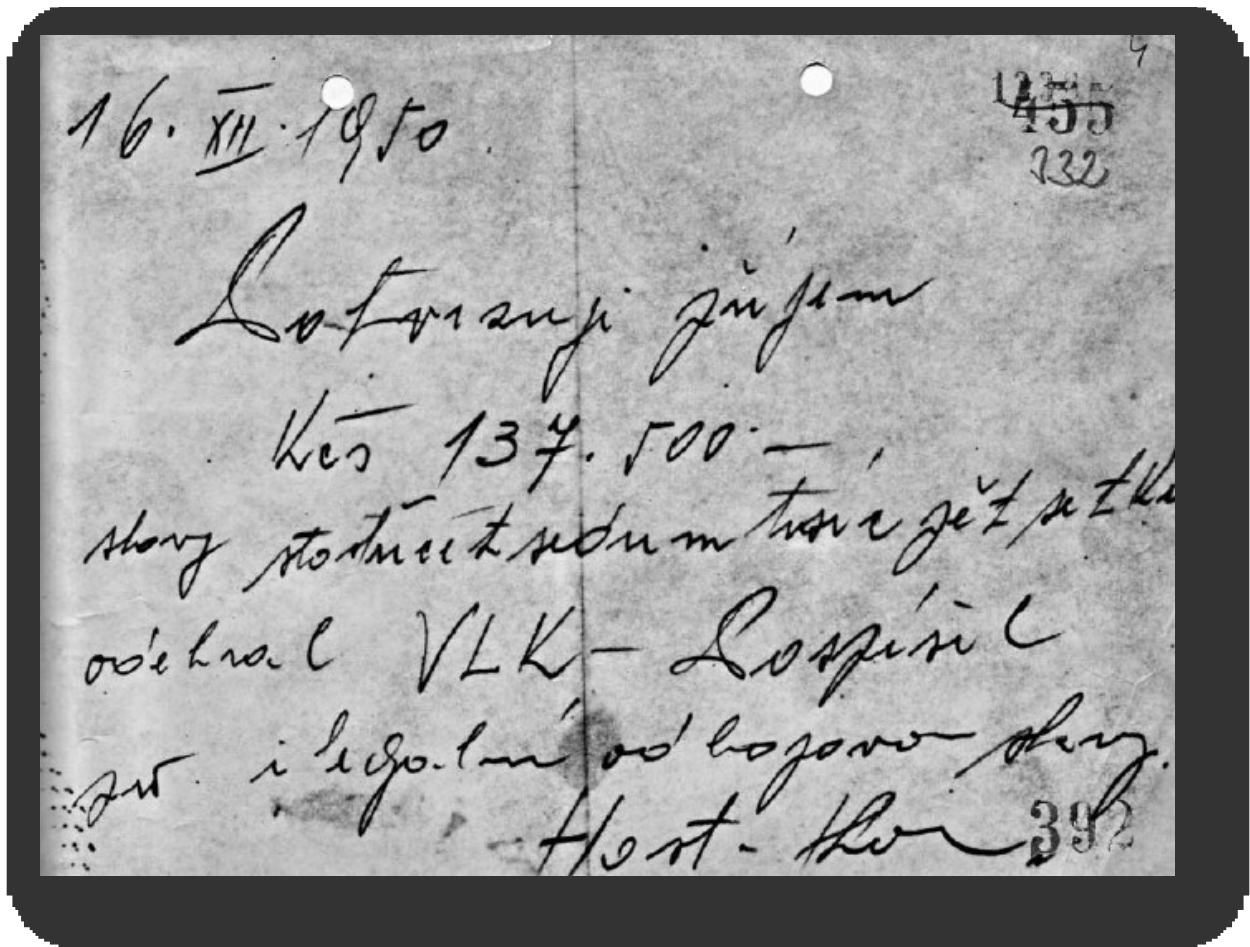 4
455
332
16. XII. 1950
Potvrzuji příjem
Kčs 137.500.—
slovy stotřicetsedumtisíc pět set Kčs
odebral VLK – Pospíšil
pro ilegalní odbojovo
Host.
392